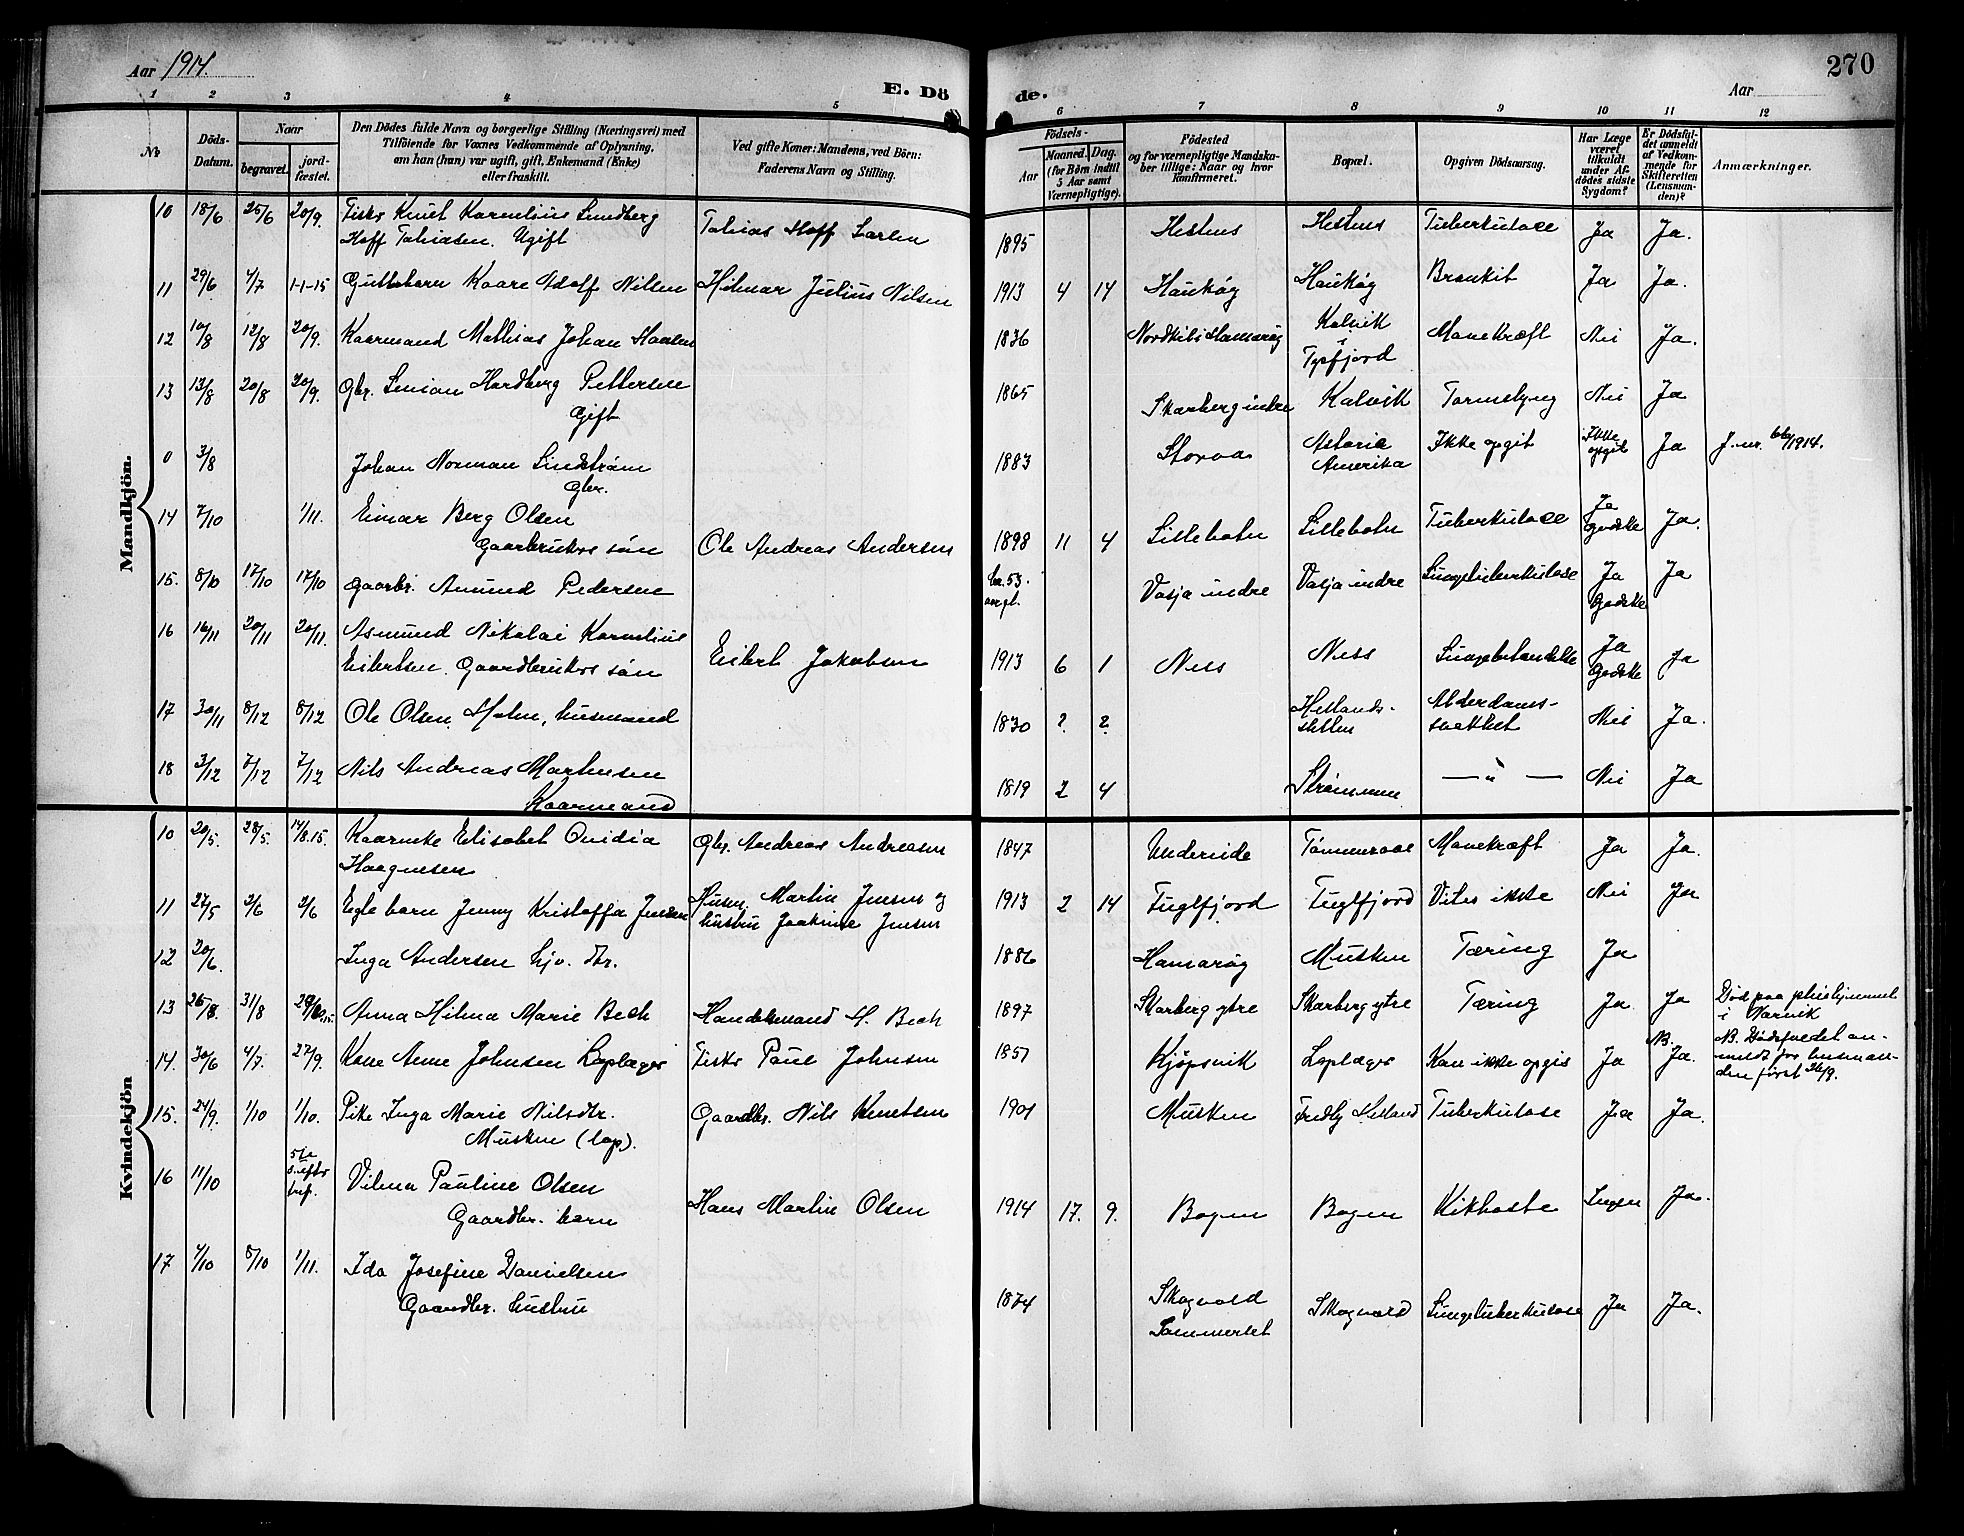 Aar 1914.
E. Dö
de.
Aar
270
1 2 3 4 5 6 7 8 9 10 11 12
Nr.
Döds-Datum.
Naar
begravet.
jord-fæstet.
Den Dödes fulde Navn og borgerlige Stilling (Næringsvei) med
Tilföiende for Voxnes Vedkommende af Oplysning,
om han (hun) var ugift, gift, Enkemand (Enke)
eller fraskilt.
Ved gifte Koner: Mandens, ved Börn:
Faderens Navn og Stilling.
Födsels-
Aar
Maaned. Dag.
(for Börn indtil
5 Aar samt
Værnepligtige).
Födested
og for værnepligtige Mandska-
ber tillige: Naar og hvor
konfirmeret.
Bopæl.
Opgiven Dödsaarsag.
Har Læge
været
tilkaldt
under Af-
dödes sidste
Sygdom?
Er Dödsfal-
det anmeldt
af Vedkom-
mende for
Skifteretten
(Lensman-
den)?
Anmærkninger.
Mandkjön.
10 18/6 25/6 20/9. Fisker Knut Kornelius Lundberg
Hoff Tobiasen. Ugift Tobias Hoff Larsen 1895 Hestnes Hestnes Tuberkulose Ja Ja.
11 29/6 4/7 1-1-15 Guttebarn Kaare Adolf Nilsen Hilmar Julius Nilsen 1913 4 14 Haukøy Haukøy Bronkit Ja Ja.
12 10/8 12/8 20/9. Kaarmand Mathias Johan 1836 Nordkil i Hamarøy Kalvik
i
Tysfjord Mavekræft Nei Ja.
13 13/8 20/8 20/9. Gbr. Simion Hardberg Pettersen
Gift 1865 Skarberg indre Kalvik Nei Ja
0 3/8 Johan Norman Lindstrøm
Gbr. 1883 Storvaa Amerika Ikke opgit Ikke
opgit Ja J. nr. 66/1914.
14 7/10 1/11. Einar Berg Olsen
Gaarbrukers søn Ole Andreas Andersen 1898 11 4 Lillebotn Lillebotn Tuberkulose Ja
Godske Ja.
15. 8/10 17/10 17/10 Gaarbr. Amund Pedersen 53. Vasja indre Vasja indre Lungetuberkulose Ja
Godske Ja
16 16/11 20/11 20/11. Asmund Nikolai Kornelius
Eilertsen. Gaardbrukers søn Eilert Jakobsen 1913 6 1 Ness Ness Lungebetændelse Ja
Godske Ja
17 30/11 8/12 8/12 Ole Olsen Holm, husmand 1830 ? ? Hellands- Alderdoms-
svækket Nei Ja.
18 3/12 7/12 7/12 Nils Andreas Martinsen
Kaarmand 1819 2 4 Strømmen — " — Nei Ja
Kvindekjön
10 20/5. 28/5. 14/8.15. Kaarenke Elisabet Ovidia
Haagensen Gbr. Andreas Andreasen 1847 Undereide Tømmeraas Mavekræft Ja Ja.
11 27/5 2/6 2/6 Egte barn Jenny Kristoffa Jensen Husm. Martin Jensen og
hustru Joakime Jensen 1913 2 14 Fuglfjord Fuglfjord Vites ikke Nei Ja
12 20/6. Inga Andersen hjv. dtr. 1886 Hamarøy Musken Tæring Ja
13 26/8. 31/8 Anna Hilma Marie Bech Handelsmand H. Bech 1897 Skarberg ytre Skarberg ytre Tæring Ja Ja Død paa pleiehjemmet
i Narvik
14. 30/6 4/7. 27/9. Kone Anne Johnsen Loplæger Fisker Paul Johnsen 1851 Kjøpsvik Loplæger Kan ikke opgis Ja NB.
Ja. NB. Dødsfaldet an-
meldt for lensman-
den først 26/9.
15. 24/9. 1/10 1/10. Pike Inga Marie Nilsdtr.
Musken (lap). Gaardbr. Nils Knutsen 1901 Musken Helland Tuberkulose Ja Ja.
16 11/10 Vilma Pauline Olsen
Gaardbr. barn Hans Martin Olsen 1914 17. 9. Bogen Bogen Kikhoste Ingen Ja.
17 4/10 8/10 1/11. Ida Josefine Danielsen
Gaardbr. hustru 1874 Skogvold
Sommerset Skogvold Lungetuberkulose Ja Ja.